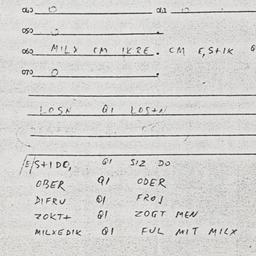 040 0 041 0
050 0 .
060 MILX CM IKRE. CM E,S+IK
070 0 .
LOSN QI LOS+N
/E/S+IDE, QI SIZ DO
OBER QI ODER
DIFRU QI FROJ
ZOKT+ QI ZOGT MEN
MILXEDIK QI FUL MIT MILX